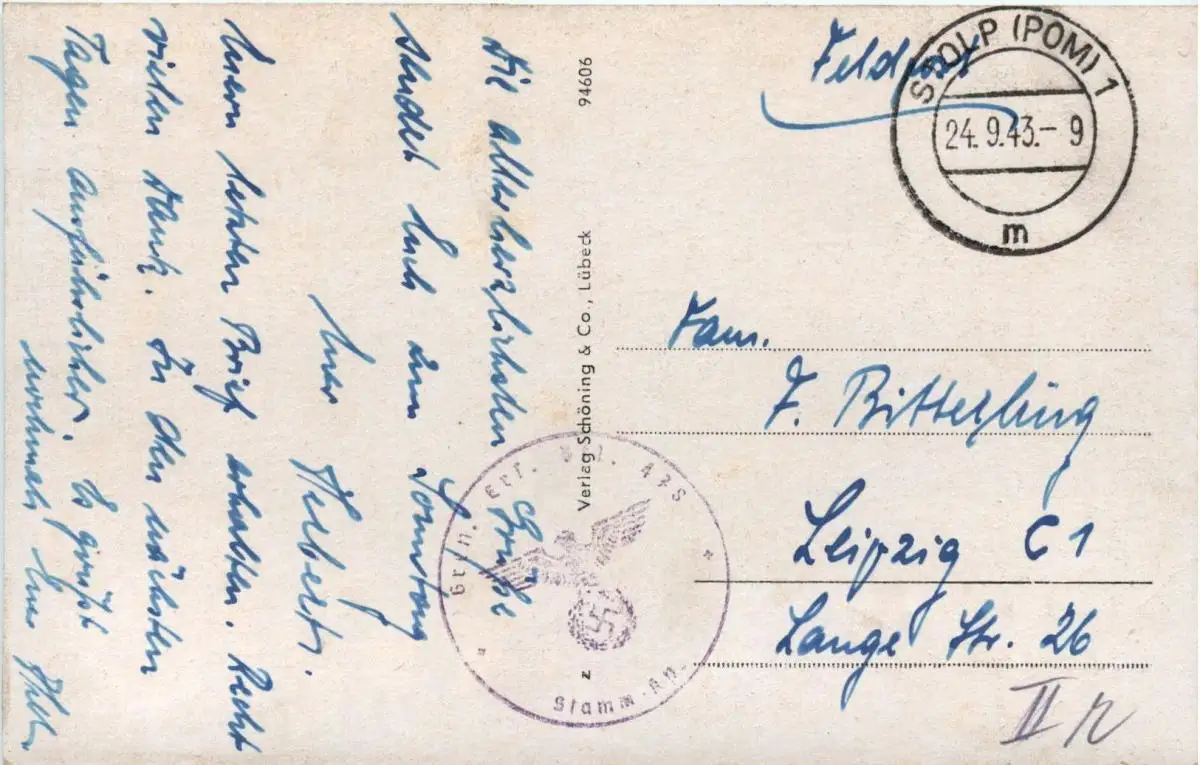 Feldpost
STOLP (POM) 1
24.9.43.-9
m
Fam.
F. Bitterling
Leipzig C1
Lange Str. 26
II
94606
Verlag Schöning & Co., Lübeck
z
Gren. Ers.
Stamm-Kp.
Die allerherzlichsten Grüße
sendet Euch zum Sonntag
Euer
Euern letzten Brief erhalten. Recht
vielen Dank. In den nächsten
Tagen ausführlicher. Es grüßt
nochmals Euer